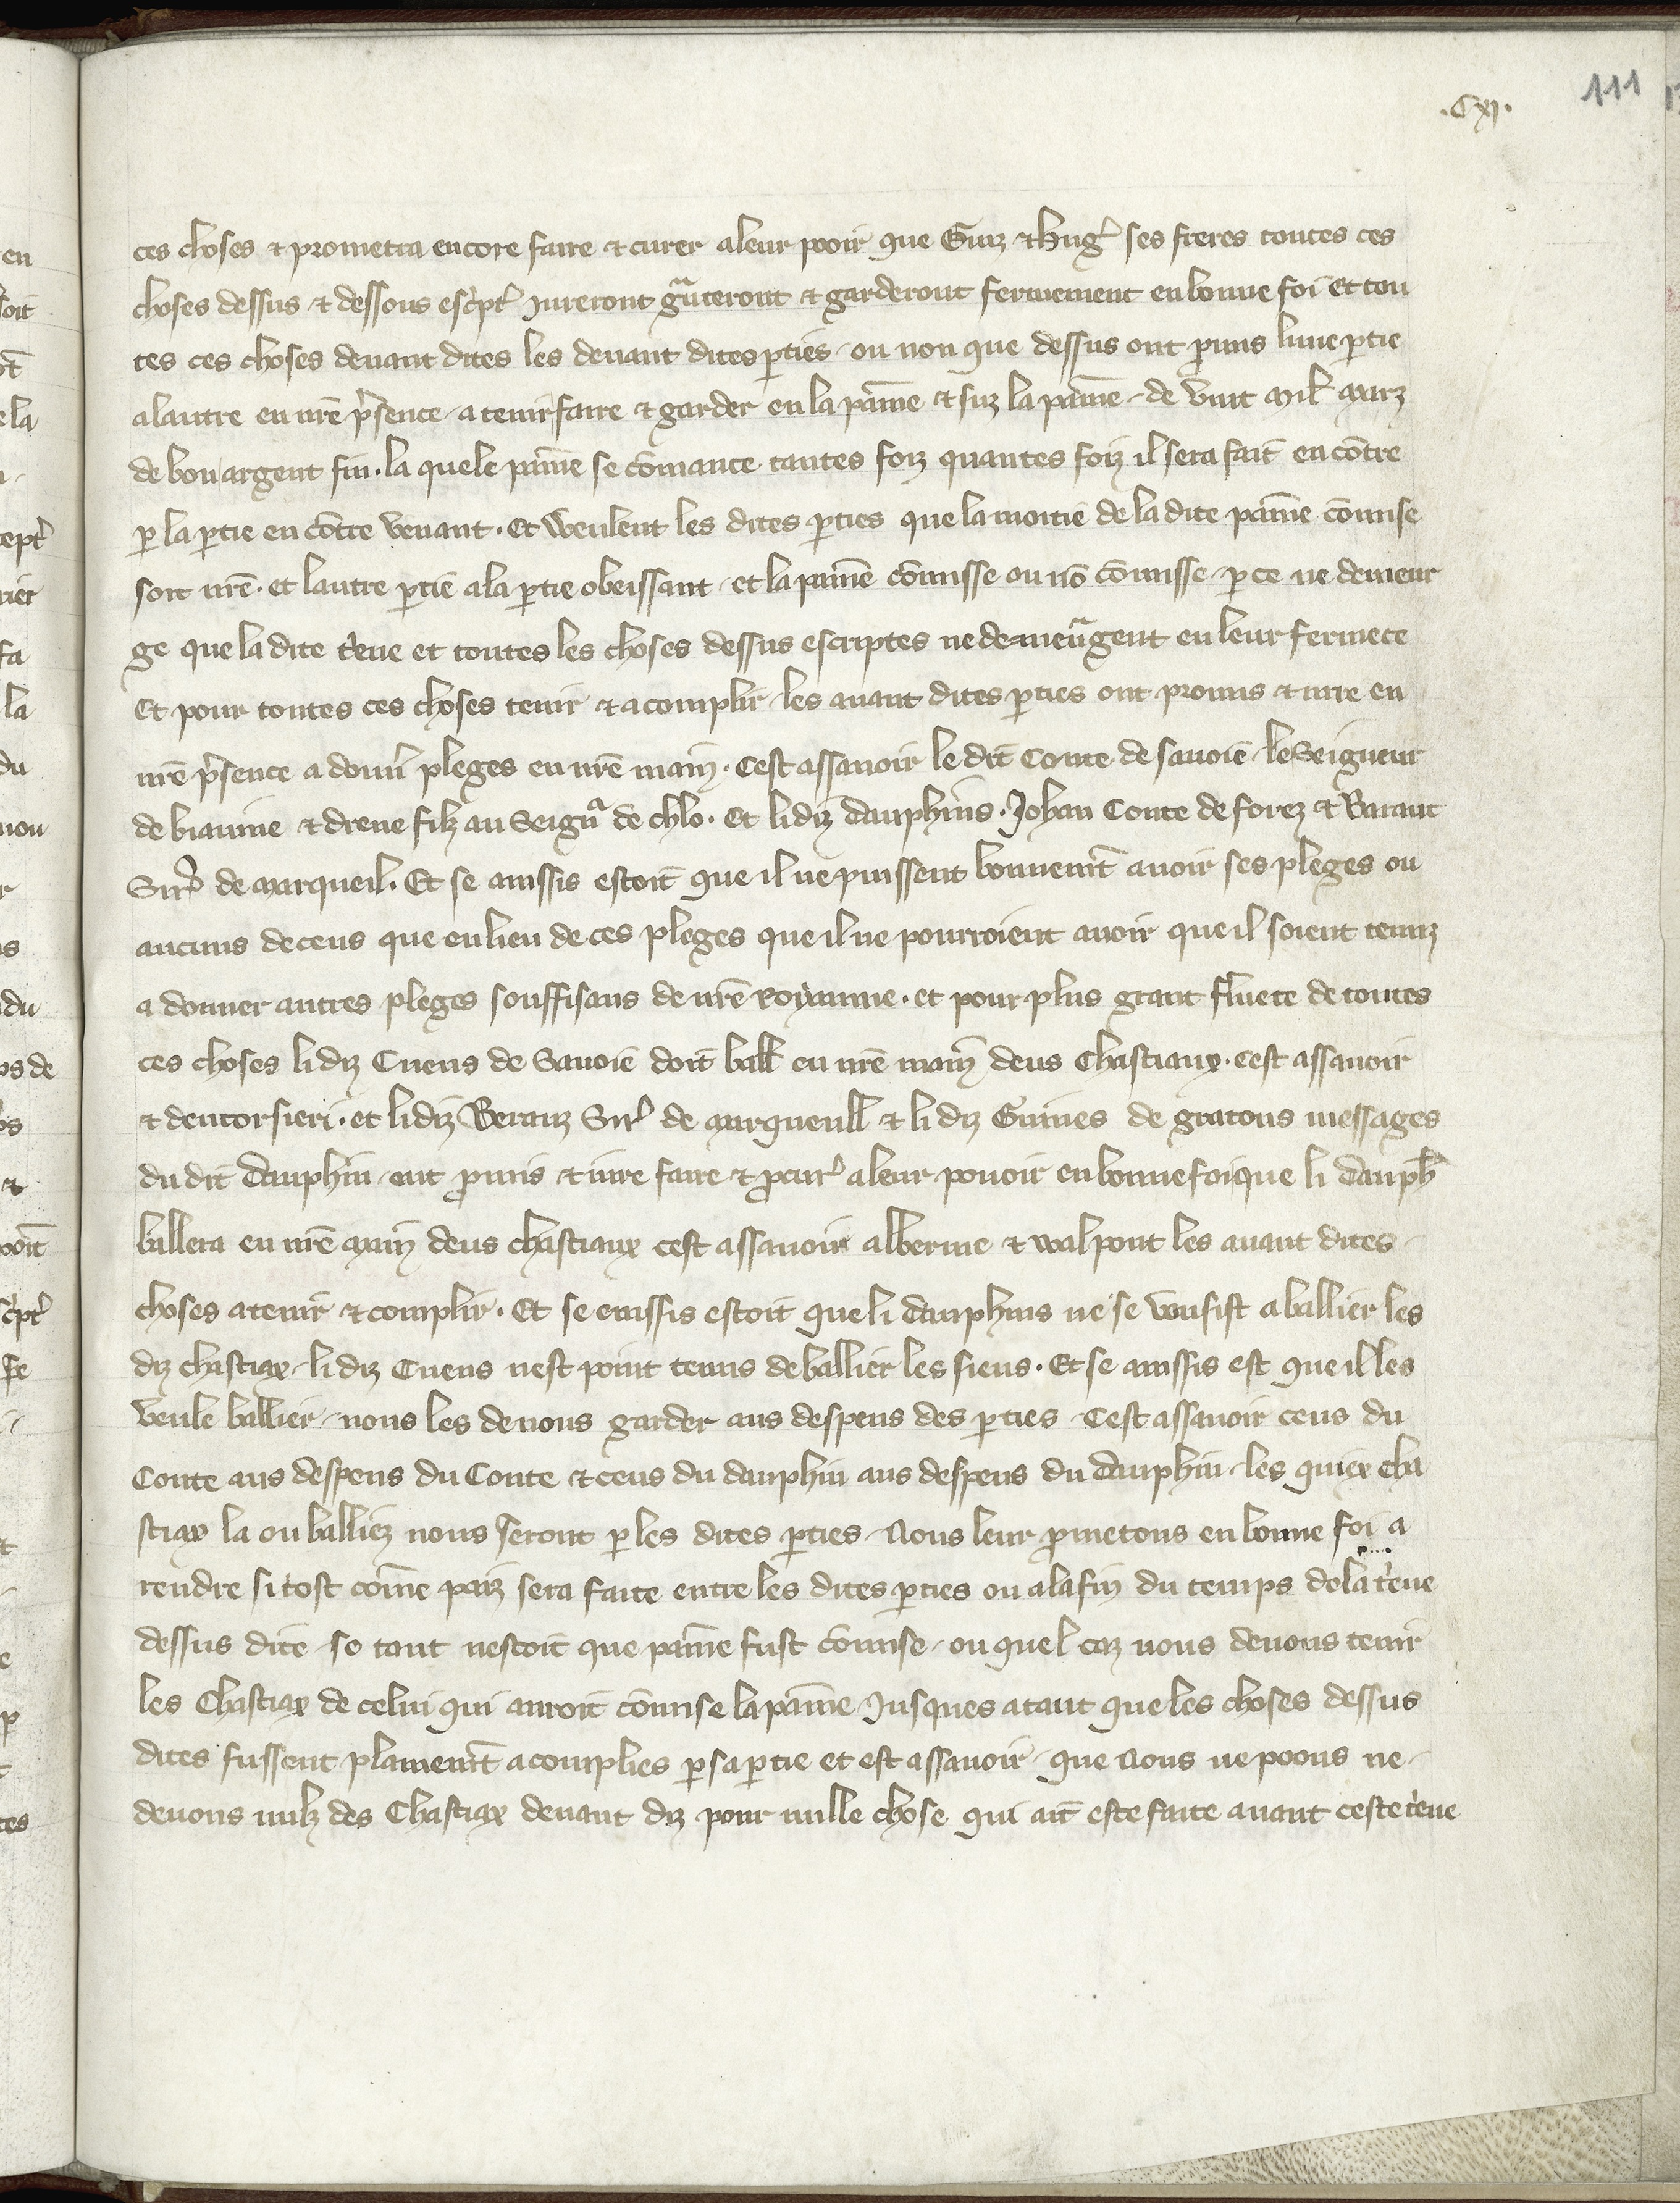 .Cxj.
111
ces choses & prometra encore faire & curer aleur pooir que Guiz & Hug̾ ses freres toutes ces
choses dessus & dessous esc̾pt̾ Iureront gᵃnteront & garderont fermement en bonne foi Et tou
tes ces choses deuant dites les deuant dites ꝑties ou non que dessus ont ꝓmis lune ꝑtie
alautre en nr̃e p̾sence atenir faire & garder en la pain̄e & suz la pain̄e de vint Mil̃ Marz
de bon argent fin. la quele pain̄e se cōmance tantes foiz quantes foiz il sera fait en cōtre
ꝑ la ꝑtie en cōtre venant. Et Weulent les dites ꝑties que la moitie de la dite pain̄e cōmise
soit nr̃e. et lautre ꝑtie ala ꝑtie obeissant et la pain̄e cōmisse ou nō cōmisse ꝑ ce ne demeur
ge que la dite t̾ieue et toutes les choses dessus escriptes ne demeuᵃgent en leur fermete
Et pour toutes ces choses tenir & acomplir les auant dites ꝑties ont promis & iure en
nr̃e p̾sence a donn̾ pleges en nr̃e main. Cest assauoir le dit Conte de sauoie le Seigneur
de biauuie & dreue filz au Seignᵃ de chlo. Et li diz dauphins. Johan Conte de forez & Baraut
Sir̾ de Marqueil. Et se aussis estoit que il ne puissent bonnemēt auoir ses pleges ou
aucuns de ceus que en lieu de ces pleges que il ne pourroient auoir que il soient tenuz
a donner autres pleges souffisans de nr̃e royaume. et pour plus grant f̾mete de toutes
ces choses li diz Cuens de Sauoie doit baill̃ en nr̃e main deus Chastiaux. cest assauoir
& dentorsieri. et li diz Beranz Sir̾ de Marqueull & li diz Guines de gratous messages
du dit Dauphin ont ꝓmis & iure faire & ꝓcur̾ aleur pouoir en bonne foi que li Dauph̃
ballera en nr̃e Main deus chastiaux cest assauoir alberine & walpont les auant dites
choses atenir & complir. Et se enissis estoit que li dauphins ne se vousist aballier les
diz chastiax li diz Cuens nest point tenus de ballier les siens. Et se aussis est que il les
veule ballier nous les deuons garder aus despens des ꝑties Cest assauoir ceus du
Conte aus despens du Conte & ceus du dauphin aus despens du Dauphin les quiex cha
stiax la ou balliez nous seront ꝑ les dites ꝑties Nous leur ꝓmetons en bonne foi a
rendre si tost com̄e paiz sera faite entre les dites ꝑties ou ala fin du temps dela t̾ieue
dessus dite se tout nestoit que pain̄e fust cōmise ou quel caz nous deuons tenir
les Chastiax de celui qui auroit cōmise la pain̄e Jusques atant que les choses dessus
dites fussent plainemēt acomplies ꝑ sa ꝑtie et est assauoir que Nous ne poons ne
deuons nulz des Chastiax deuant diz pour nulle chose qui ait este faite auant ceste t̾ieue